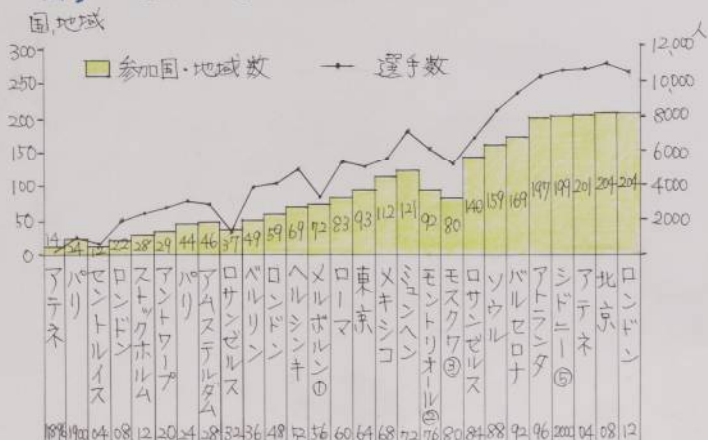 国,地域
人
参加国・地域数
選手数
300
250
200
150
100
50
0
12,000
10,000
8000
6000
4000
2000
14
24
12
22
28
29
44
46
37
49
59
69
72
83
93
112
121
92
80
140
159
169
197
199
201
204
204
アテネ
パリ
セントルイス
ロンドン
ストックホルム
アントワープ
パリ
アムステルダム
ロサンゼルス
ベルリン
ロンドン
ヘルシンキ
メルボルン①
ローマ
東京
メキシコ
ミュンヘン
モントリオール②
モスクワ③
ロサンゼルス
ソウル
バルセロナ
アトランタ
シドニー⑤
アテネ
北京
ロンドン
1896
1900
04
08
12
20
24
28
32
36
48
52
56
60
64
68
72
76
80
84
88
92
96
2000
04
08
12